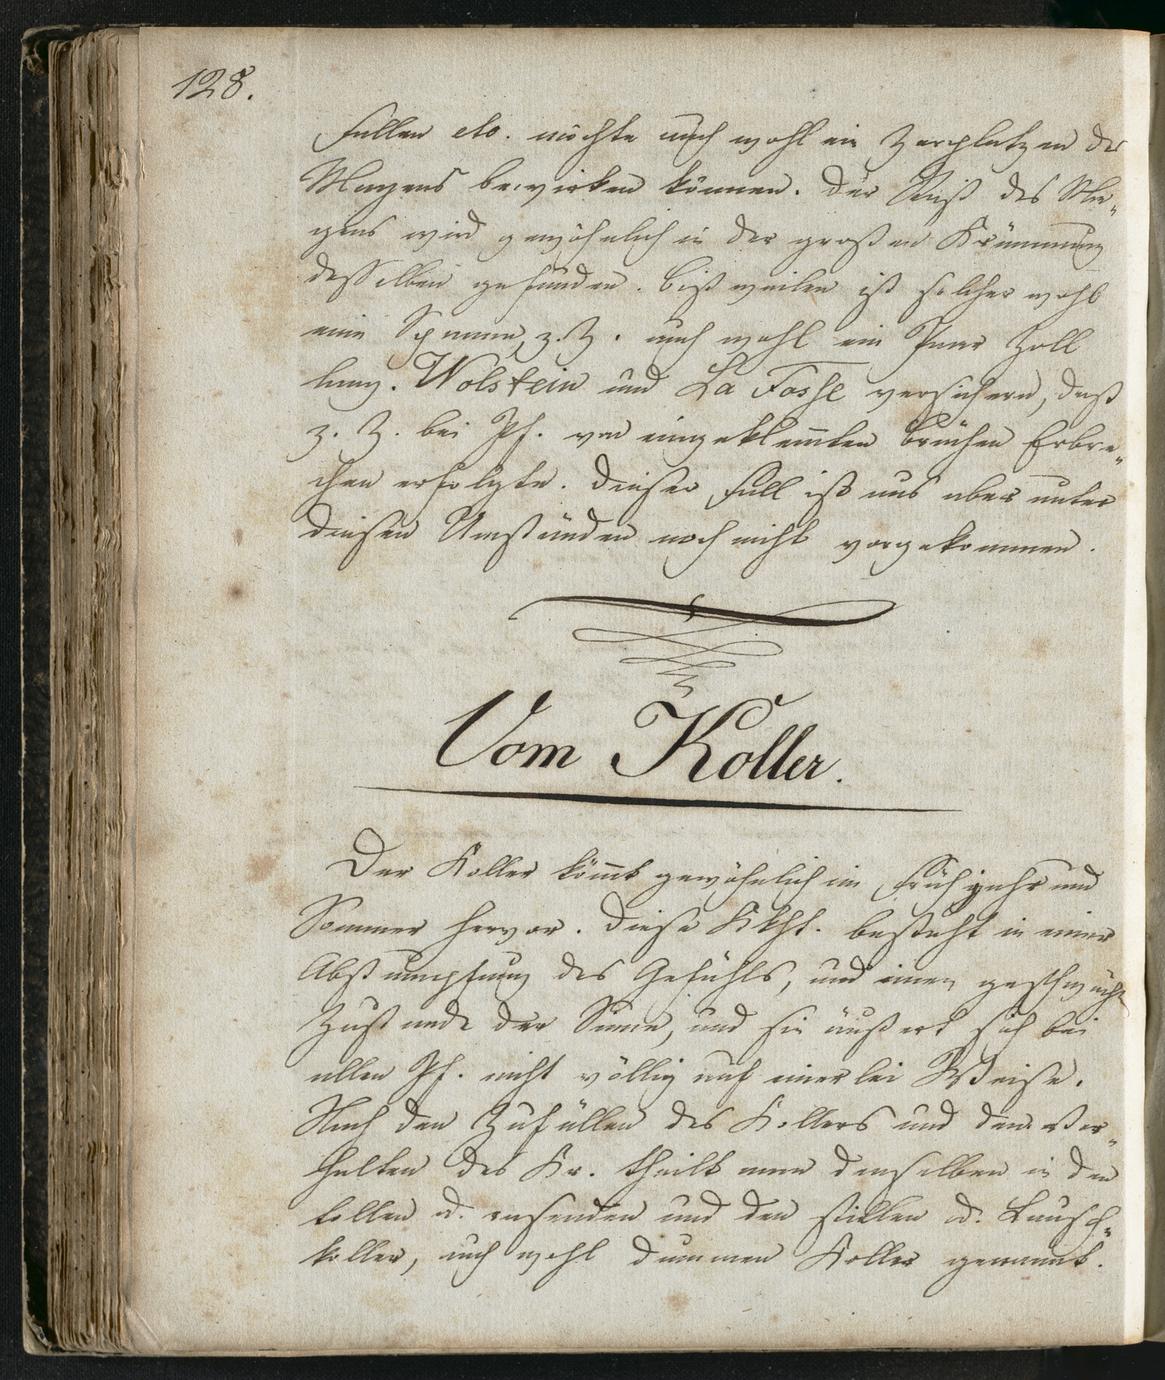 128.
Fallen etc. möchte auch wohl ein Zerplatzen des
Magens bewirken können. Der Riß des Ma„
gens wird gewöhnlich in der großen Krümmung
desselben gefunden. Bißweilen ist solcher wohl
eine Spanne, z. Z. auch wohl ein Paar Zoll
lang. Wolstein und La Fosse versichern, daß
z. Z. bei Pf. von eingeklemten Brüchen Erbre„
chen erfolgte. Dieser Fall ist uns aber unter
diesen Umständen noch nicht vorgekommen.
Vom Koller.
Der Koller kömt gewöhnlich im Frühjahr und
Sommer hervor. Diese Kkht. besteht in einer
Abstumpfung des Gefühls, und einen geschwächt
Zustande der Sinne, und sie äußert sich bei
allen Pf. nicht völlig auf einerlei Weise.
Nach den Zufällen des Kollers und dem Ver„
halten des Kr. theilt man denselben in den
tollen od. rasenden und den stillen od. Lausch„
koller, auch wohl dummen Koller genannt.